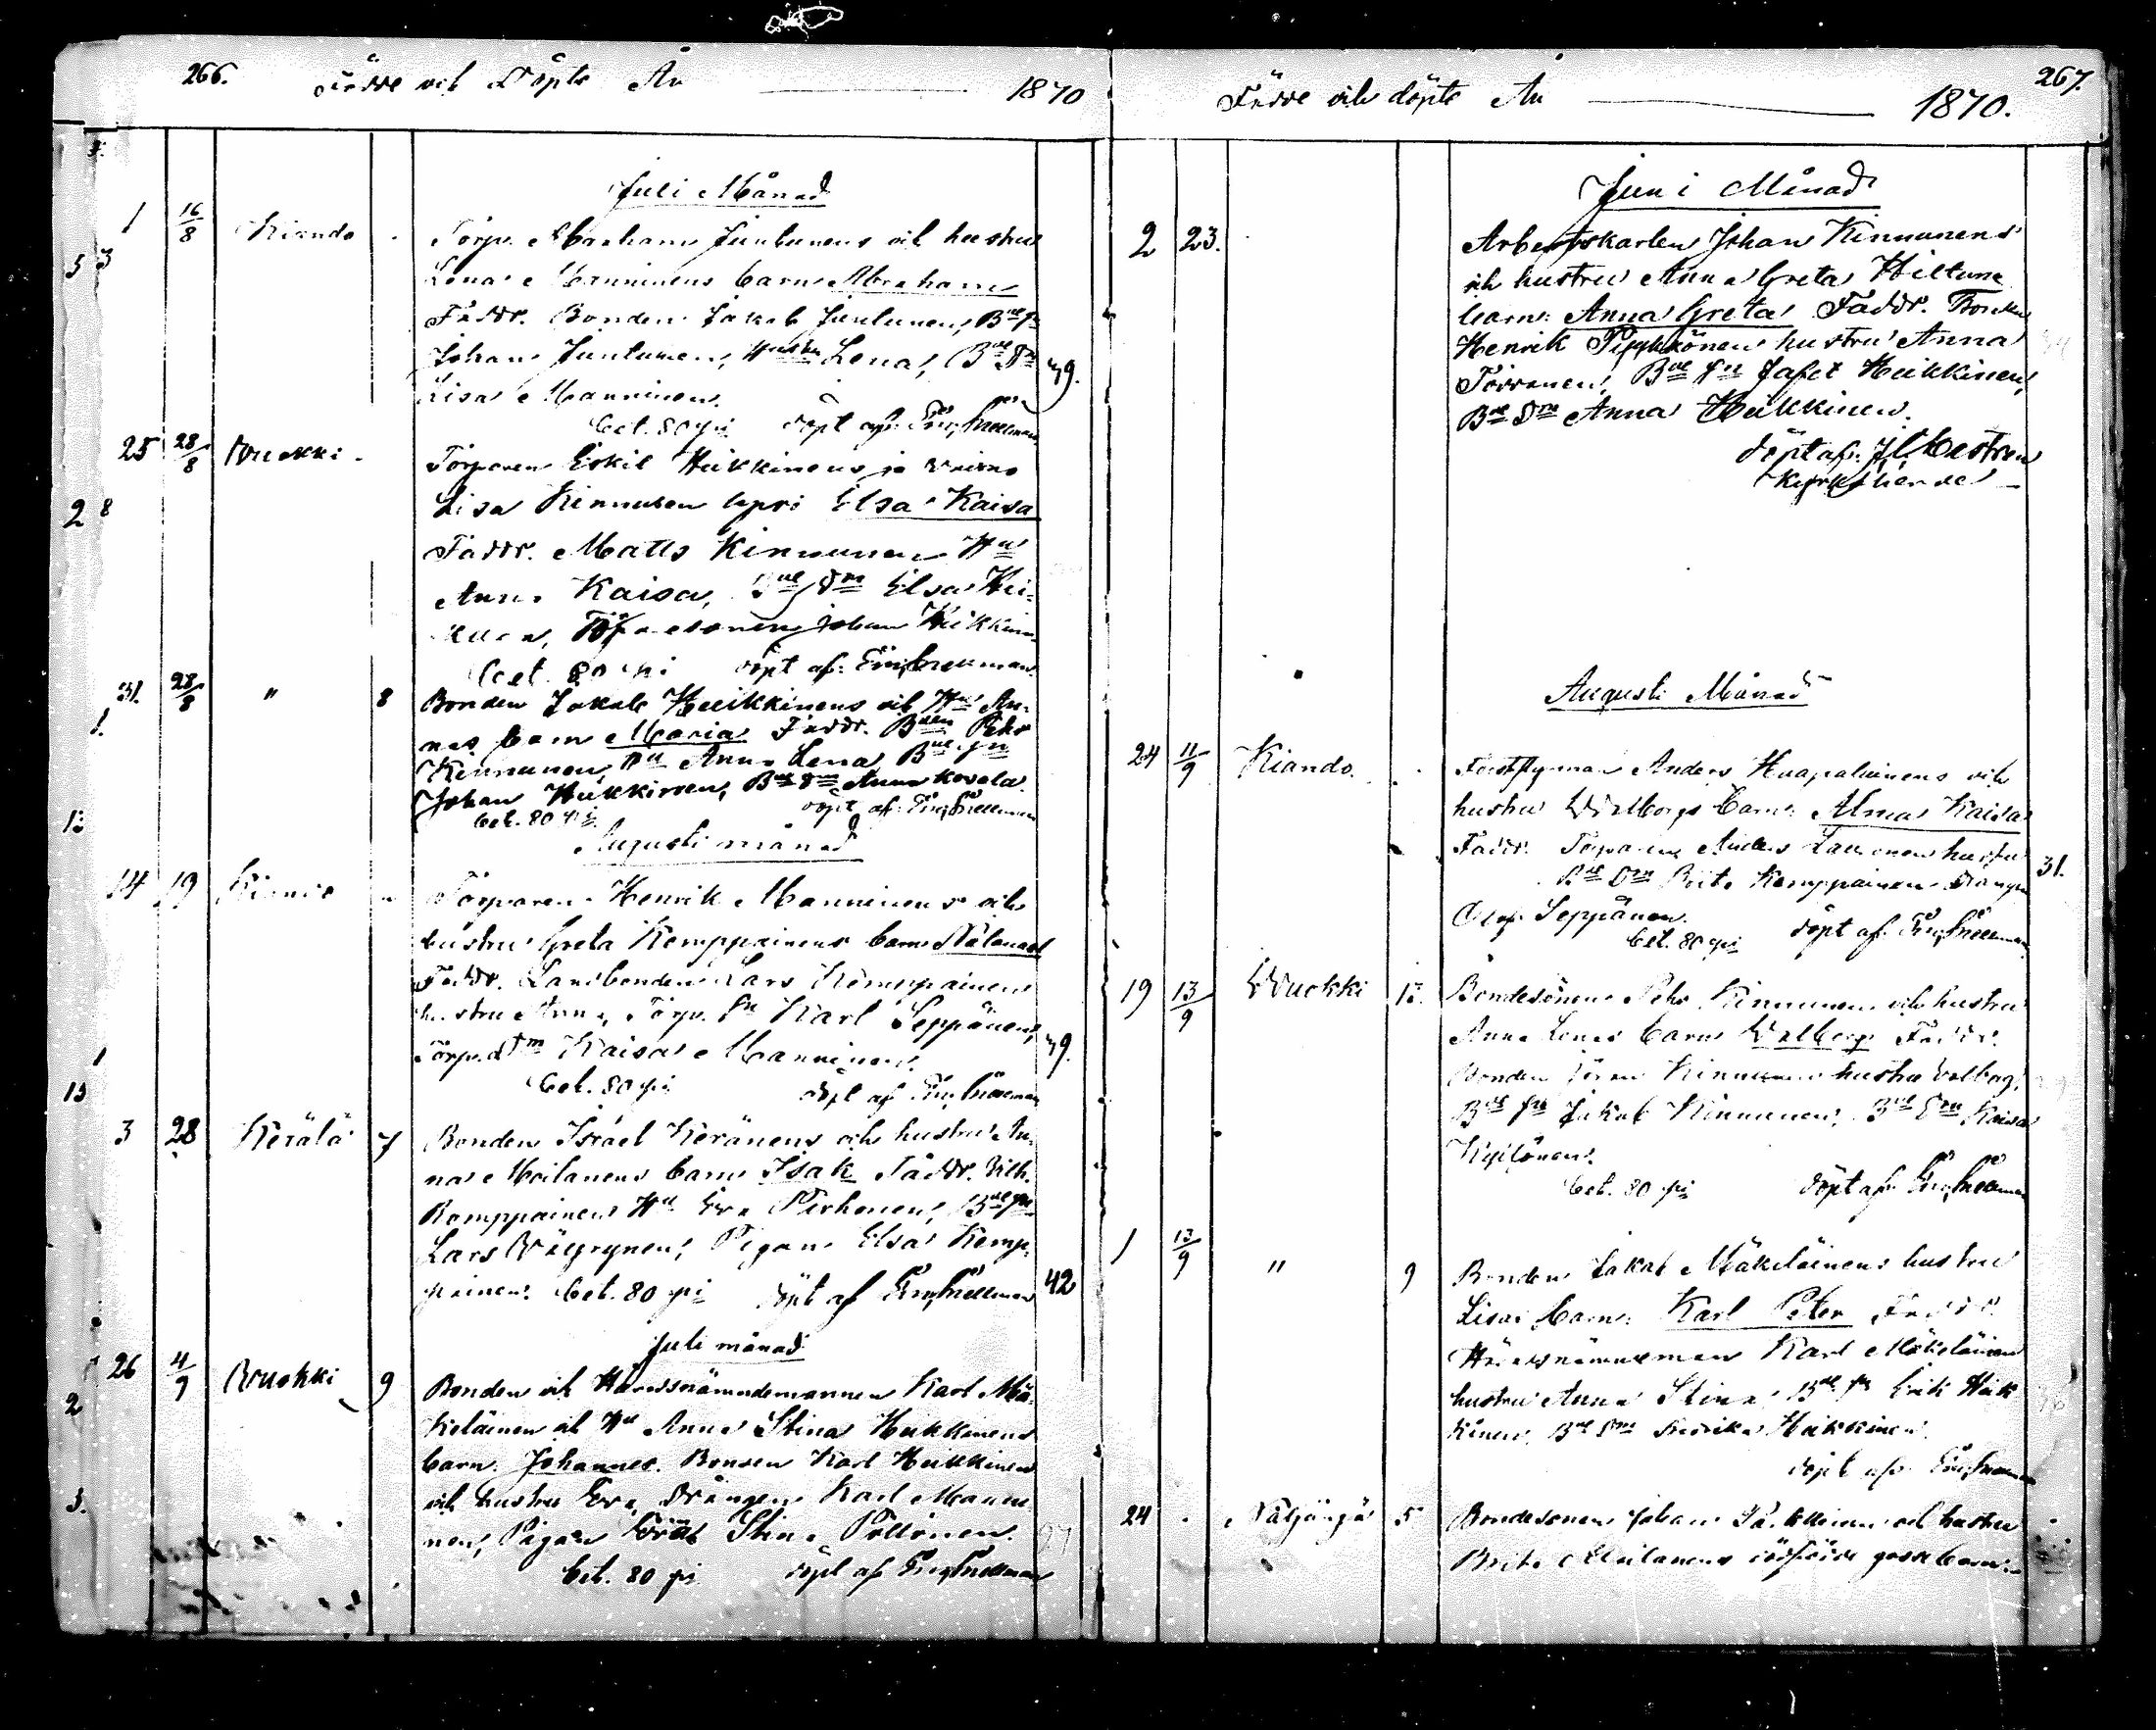 266. Födde och Döpte År 1870
Juli Månad
1 16/8 Kiando Torp. Abraham Juntunens och hustru
Lena Manninens barn Abraham
Faddr. Bonden Jakob Juntunen, Bde sn
Johan Juntunen, Hustru Lena, Bde Dn 49.
Lisa Manninen.
bet. 80 pi döpt af:
25 28/8 Wuokki Torparen Eskil Heikkinens ja vaimo
Lisa Kinnusen lapsi Elsa Kaisa
Faddr. Matts Kinnunen Hu
Anna Kaisa, Bde Dn Elsa Hei-
Johan Heikkinen
bet. 80 pi döpt af:
31. 28/8 " 8 Bonden Jakob Heikkinens och Hu An-
nas barn Maria Faddr. Bden Pehr
Kinnunen, Hu Anna Lena, Bde sn
Johan Heikkinen, Bde Dn Anna Kovala.
bet. 80 pi döpt af:
Augusti månad
14 19 Kiando Torparen Henrik Manninens och
hustru Greta Kemppainens barn Natanael
Faddr. Landbonden Lars Kemppainen
hustru Anna, Torp. Sn Karl Seppänen,
Torp. dtn Kaisa Manninen. 49.
bet. 80 pi döpt af
3 28 Kerälä 7 Bonden Israel Keränens och hustru An-
na Moilanens barn Isak Faddr. Vilh.
Komppainen Hu Eva Pirhonen, Bde sn
Lars Wäyrynen, Pigan Elsa Kemp-
painen. bet. 80 pi döpt af 42
Juli månad
26 4/9 Wuokki 9 Bonden och Häradsnämndemannen Karl Mä-
keläinen och Hu Anna Stina Heikkinens
barn: Johannes. Bonden Karl Heikkinen
och hustru Eva, Drängen Karl Manni-
nen, Pigan Stina Pöllönen. 97
bet. 80 pi döpt af
267.
Födde och döpte År 1870.
Juni Månad
2 23. Arbetskarlen Johan Kinnunens
och hustru Anna Greta Hiltunens
barn: Anna Greta Faddr. Bonden
Henrik Pyykkönen hustru Anna
Toivonen, Bde sn Jafet Heikkinen,
Bde Dn Anna Heikkinen.
döpt af:
Kyrkoherde
Augusti Månad
24 11/9 Kiando. Anders Haapalainens och
hustru Walborgs barn: Alma Kaisa
Faddr. Torparen Anders hustru 31.
Bde Dn Brita Kemppainen Drängen
Olof Seppänen.
bet. 80 pi döpt af
19 13/9 Wuokki 12. Bondesonen Pehr Kinnunen och hustru
Anna Lenas barn Walborg Faddr.
Bonden Göran Kinnunen hustru Valborg,
Bde sn Jakob Kinnunen, Bde Dn Kaisa
Kyllönen.
bet. 80 pi döpt af
1 13/9 " 9 Bonden Jakob Mäkeläinens hustru
Lisas barn: Karl Peter Faddr.
Häradsnämndeman Karl Mäkeläinen
hustru Anna Stina, Bde sn Erik Heik-
kinen, Bde Dn Fredrika Heikkinen.
döpt af
24 Näljängä 5 Bondesonen Johan och hustru
Brita Moilanens dödfödde gossebarn.